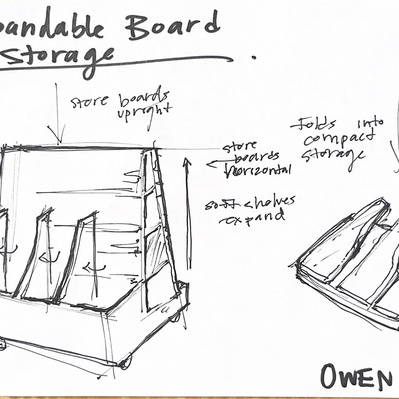 pandable Board
Storage
store boards
upright
store
boards
horizontal
soft shelves
expand
Folds into
compact
storage
OWEN